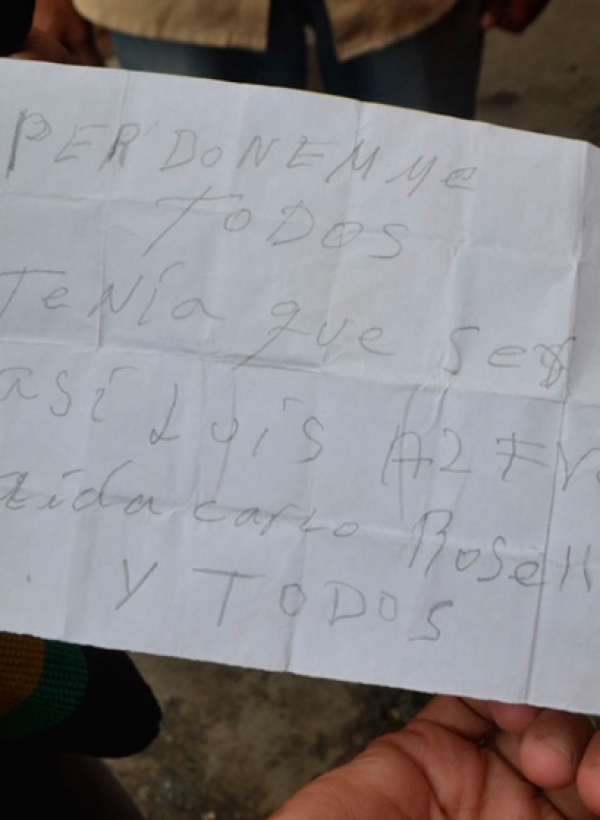 PERDONEMME
TODOS
TeNía que ser
así LUiS
aida carlo Rosell
Y TODOS